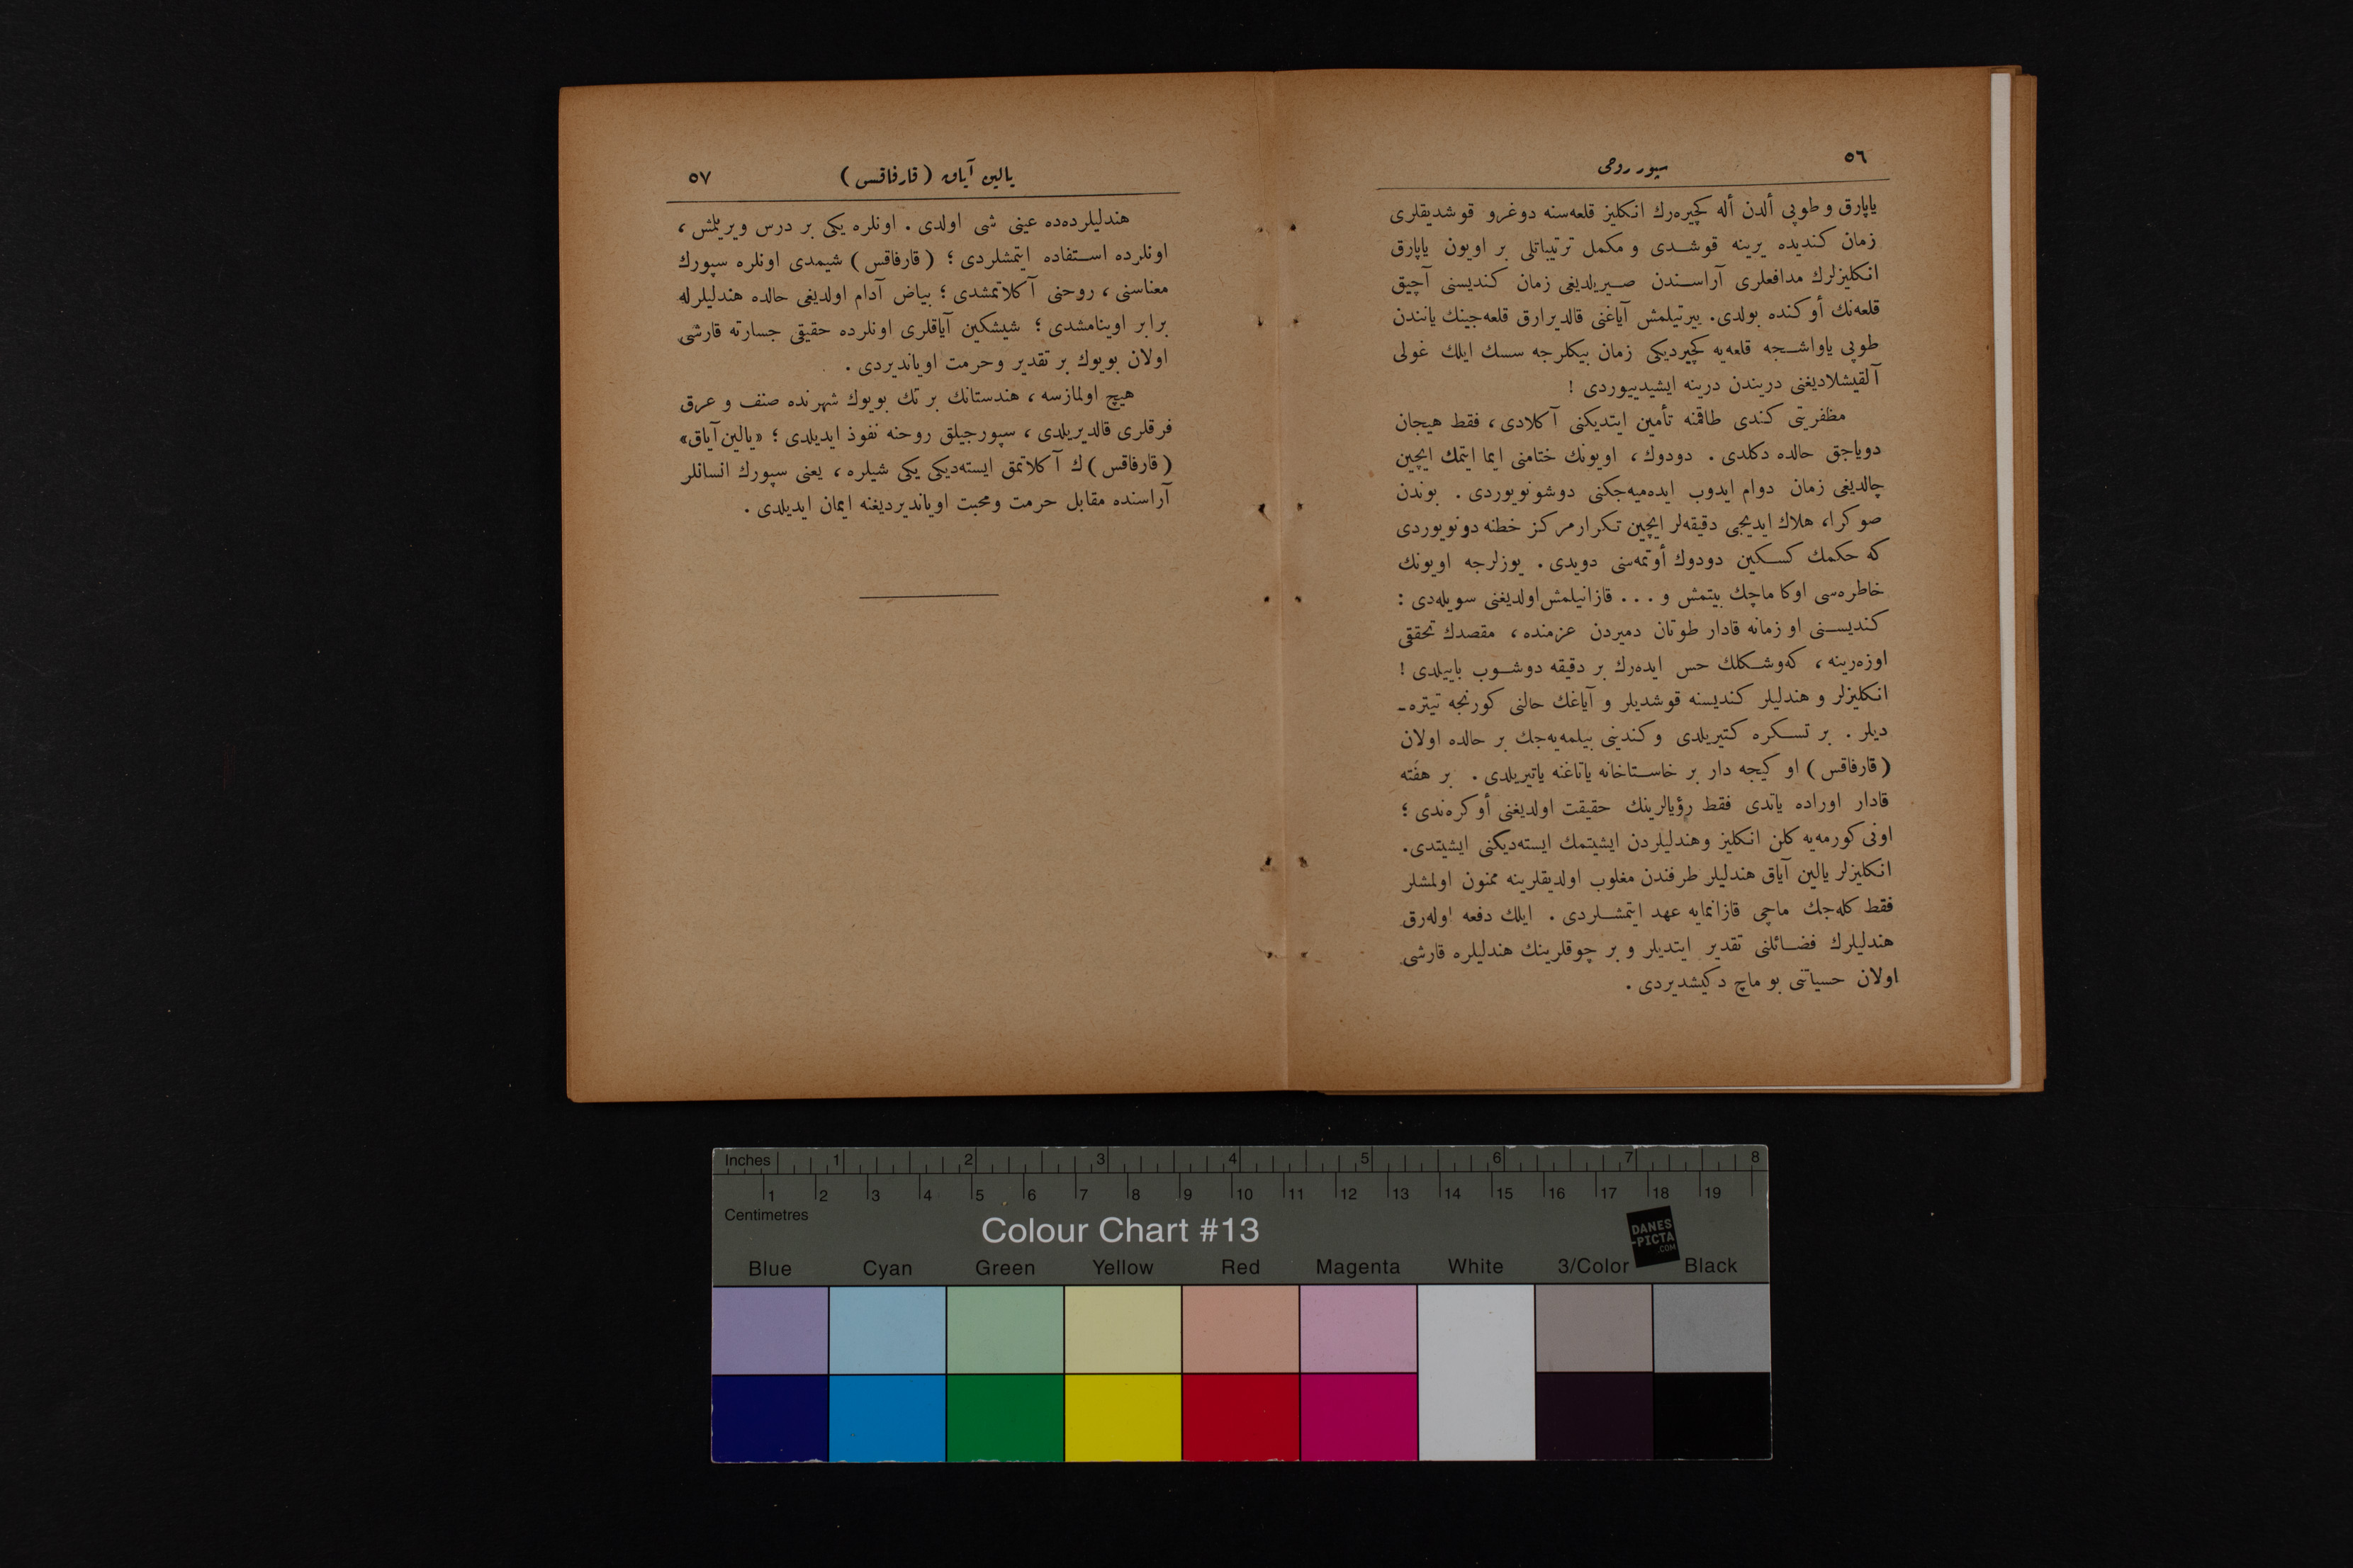 ٥٦
سپور روحی
یاپارق و طوپی ألدن أله كچیره‌رك انكلیز قلعه‌سنه دوغرو قوشدیقلری
زمان كندیده یرینه قوشدی و مكمل ترتیباتلی بر اویون یاپارق
انكلیزلرك مدافعلری آراسندن صیریلدیغی زمان كندیسنی آچیق
قلعه‌نك أوكنده بولدی. ییرتیلمش آیاغنی قالدیرارق قلعه‌جینك یانندن
طوپی یاواشجه قلعه‌یه كچیردیكی زمان بیكلرجه سسك ایلك غولی
آلقیشلادیغنی دریندن درینه ایشیدییوردی !
مظفریتی كندی طاقمنه تأمین ایتدیكنی آكلادی، فقط هیجان
دویاجق حالده دكلدی . دودوك، اویونك ختامنی ایما ایتمك ایچین
چالدیغی زمان دوام ایدوب ایده‌میه‌جكنی دوشونویوردی . بوندن
صوكرا، هلاك ایدیجی دقیقه‌لر ایچین تكرار مركز خطنه دونویوردی
كه حكمك كسكین دودوك أوتمه‌سنی دویدی . یوزلرجه اویونك
خاطره‌سی اوكا ماچك بیتمش و . . . قازانیلمش اولدیغنی سویله‌دی :
كندیسنی او زمانه قادار طوتان دمیردن عزمنده ، مقصدك تحققی
اوزه‌رینه ، كه‌وشكلك حس ایده‌رك بر دقیقه دوشوب باییلدی !
انكلیزلر و هندلیلر كندیسنه قوشدیلر و آیاغك حالنی كورنجه تیتره‌ـ
دیلر . بر تسكره كتیریلدی و كندینی بیلمه‌یه‌جك بر حالده اولان
(قارفاقس) او كیجه دار بر خاستاخانه یاتاغنه یاتیریلدی . بر هفته
قادار اوراده یاتدی فقط رؤیالرینك حقیقت اولدیغنی أوكره‌ندی ؛
اونی كورمه‌یه كلن انكلیز و هندلیلردن ایشیتمك ایسته‌دیكنی ایشیتدی.
انكلیزلر یالین آیاق هندلیلر طرفندن مغلوب اولدیقلرینه ممنون اولمشلر
فقط كله‌جك ماچی قازانمایه عهد ایتمشلردی . ایلك دفعه اوله‌رق
هندلیلرك فضائلنی تقدیر ایتدیلر و بر چوقلرینك هندلیلره قارشی
اولان حسیاتنی بو ماچ دكیشدیردی .
یالین آیاق (قارفاقس)
٥٧
هندلیلرده‌ده عینی شی اولدی . اونلره یكی بر درس ویریلمش ،
اونلرده استفاده ایتمشلردی ؛ (قارفاقس) شیمدی اونلره سپورك
معناسنی ، روحنی آكلاتمشدی ؛ بیاض آدام اولدیغی حالده هندلیلرله
برابر اوینامشدی ؛ شیشكین آیاقلری اونلرده حقیقی جسارته قارشی
اولان بویوك بر تقدیر و حرمت اویاندیردی .
هیچ اولمازسه ، هندستانك بر تك بویوك شهرنده صنف و عرق
فرقلری قالدیریلدی ، سپورجیلق روحنه نفوذ ایدیلدی ؛ «یالین آیاق»
(قارفاقس) ك آكلاتمق ایسته‌دیكی یكی شیلره ، یعنی سپورك انسانلر
آراسنده مقابل حرمت و محبت اویاندیردیغنه ایمان ایدیلدی .
Inches 1 2 3 4 5 6 7 8
1 2 3 4 5 6 7 8 9 10 11 12 13 14 15 16 17 18 19
Centimetres
Colour Chart #13
DANES
-PICTA
.COM
Blue Cyan Green Yellow Red Magenta White 3/Color Black